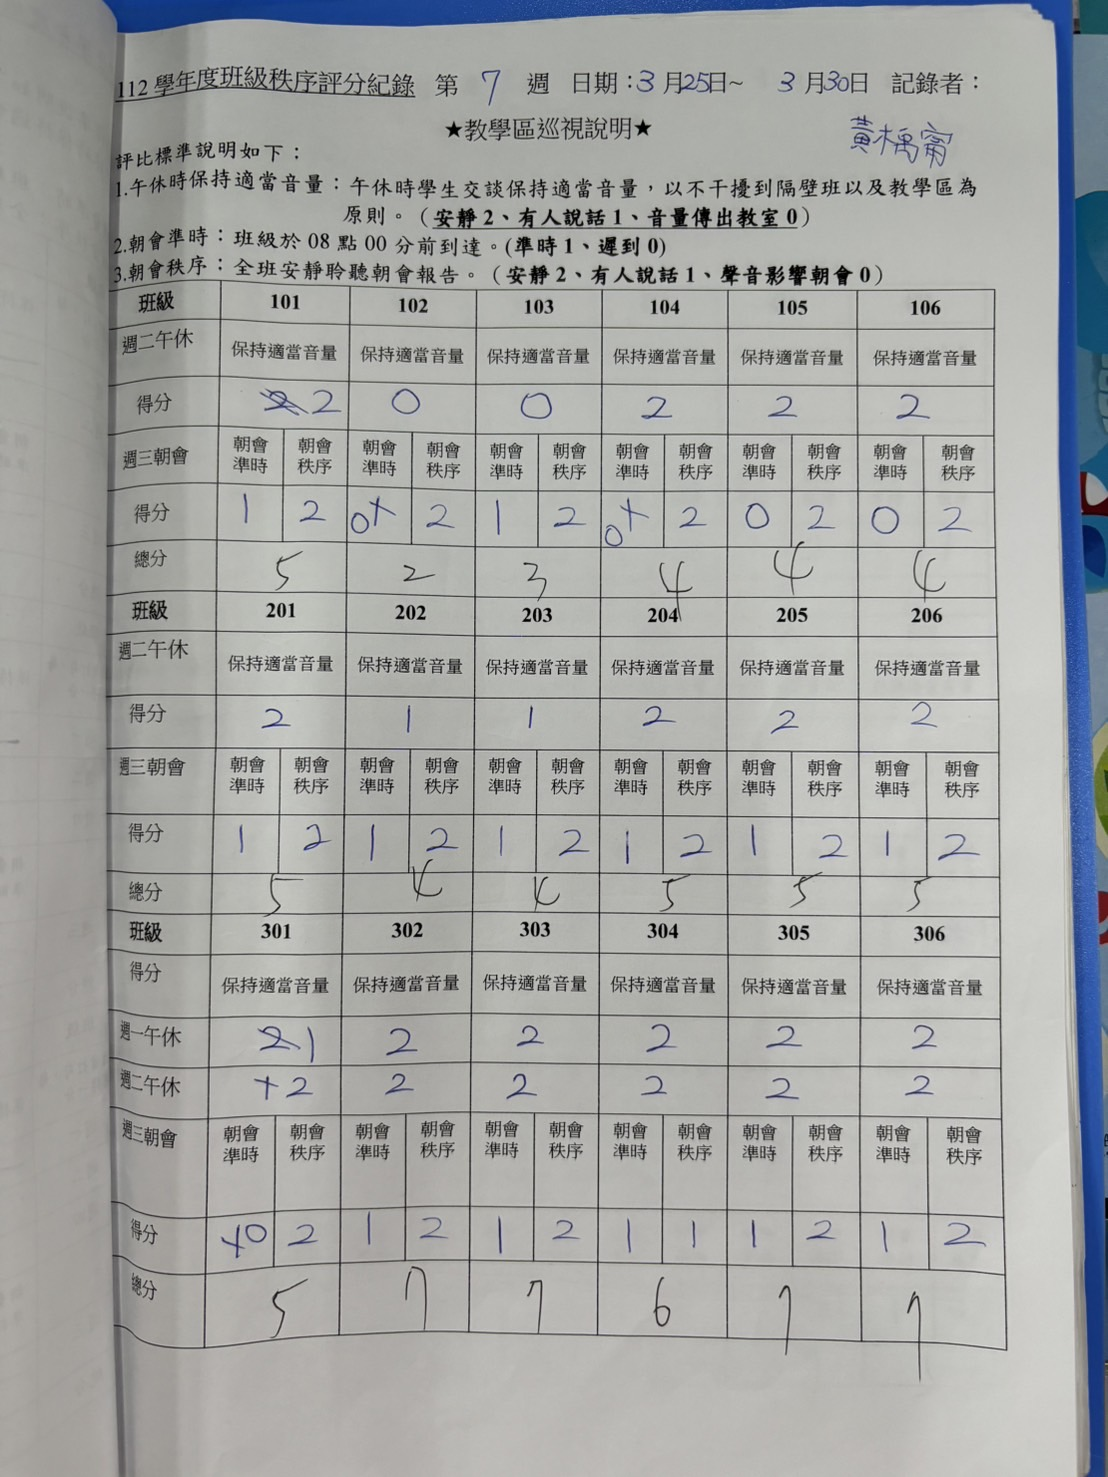 112 學年度班級秩序評分紀錄 第 7 週 日期：3 月25日~ 3 月30日 記錄者：
★教學區巡視說明★
評比標準說明如下：
1.午休時保持適當音量：午休時學生交談保持適當音量，以不干擾到隔壁班以及教學區為
原則。（安靜 2、有人說話 1、音量傳出教室 0）
2.朝會準時：班級於 08 點 00 分前到達。(準時 1、遲到 0)
3.朝會秩序：全班安靜聆聽朝會報告。（安靜 2、有人說話 1、聲音影響朝會 0）
班級 101 102 103 104 105 106
週二午休 保持適當音量 保持適當音量 保持適當音量 保持適當音量 保持適當音量 保持適當音量
得分 2 0 0 2 2 2
週三朝會 朝會準時 朝會秩序 朝會準時 朝會秩序 朝會準時 朝會秩序 朝會準時 朝會秩序 朝會準時 朝會秩序 朝會準時 朝會秩序
得分 1 2 0 2 1 2 0 2 0 2 0 2
總分 5 2 3 4 4 4
班級 201 202 203 204 205 206
週二午休 保持適當音量 保持適當音量 保持適當音量 保持適當音量 保持適當音量 保持適當音量
得分 2 1 1 2 2 2
週三朝會 朝會準時 朝會秩序 朝會準時 朝會秩序 朝會準時 朝會秩序 朝會準時 朝會秩序 朝會準時 朝會秩序 朝會準時 朝會秩序
得分 1 2 1 2 1 2 1 2 1 2 1 2
總分 5 4 4 5 5 5
班級 301 302 303 304 305 306
得分 保持適當音量 保持適當音量 保持適當音量 保持適當音量 保持適當音量 保持適當音量
週一午休 1 2 2 2 2 2
週二午休 2 2 2 2 2 2
週三朝會 朝會準時 朝會秩序 朝會準時 朝會秩序 朝會準時 朝會秩序 朝會準時 朝會秩序 朝會準時 朝會秩序 朝會準時 朝會秩序
得分 0 2 1 2 1 2 1 1 1 2 1 2
總分 5 7 7 6 7 7